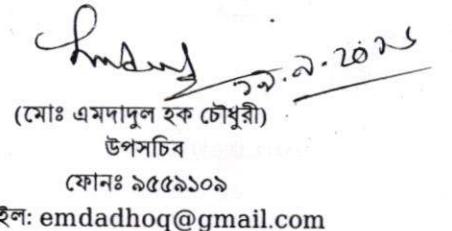 (মোঃ এমদাদুল হক চৌধুরী)
উপসচিব
ফোনঃ ৯৫৫৯১০৯
ইল: emdadhoq@gmail.com